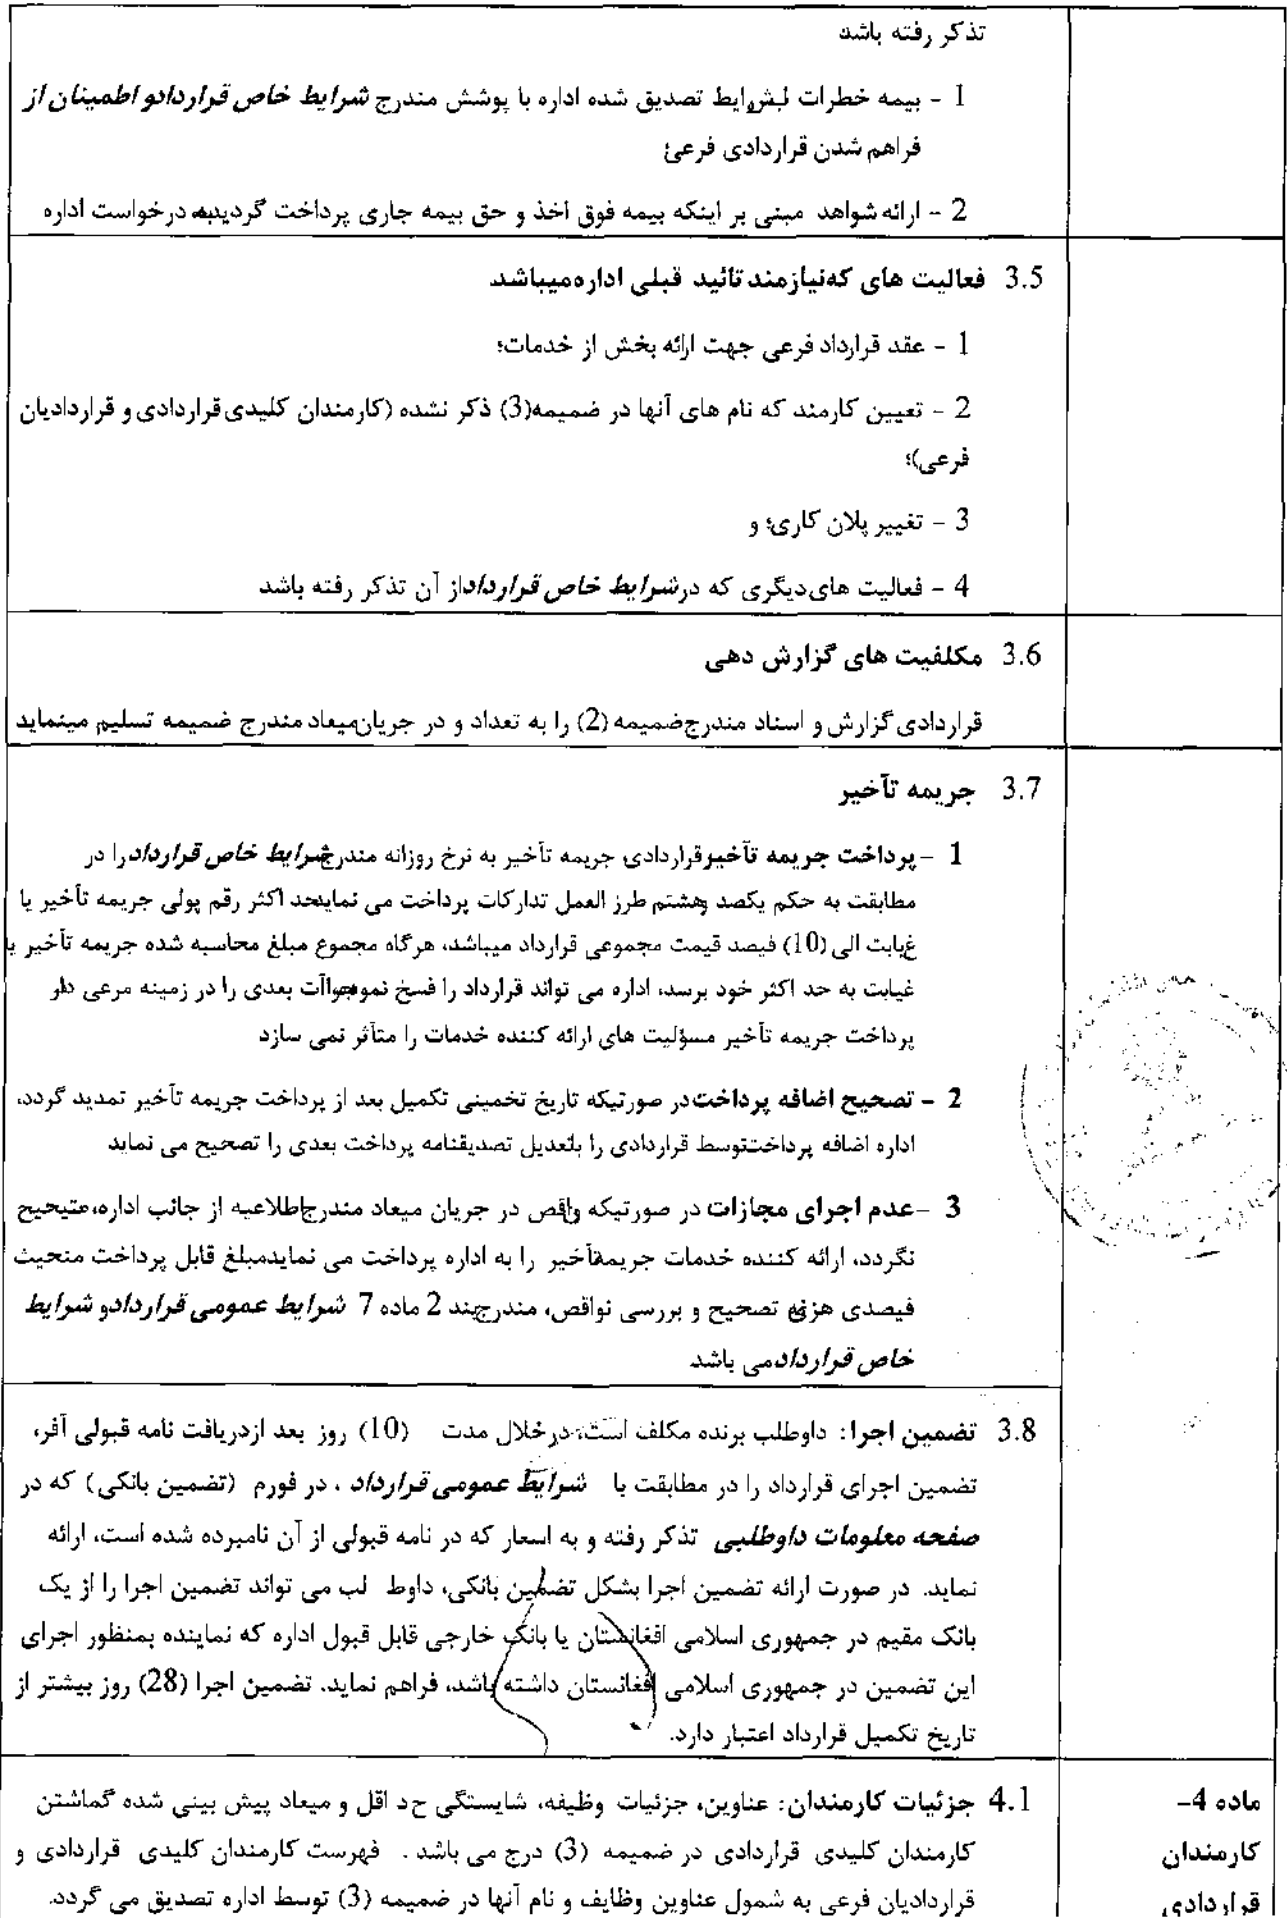 تذکر رفته باشد
1 - بیمه خطرات لبشرایط تصدیق شده اداره با پوشش مندرج شرایط خاص قراردادو اطمینان از
فراهم شدن قراردادی فرعی؛
2 - ارائه شواهد مبنی بر اینکه بیمه فوق اخذ و حق بیمه جاری پرداخت گردیده به درخواست اداره
3.5 فعالیت های که نیازمند تائید قبلی اداره میباشد
1 - عقد قرارداد فرعی جهت ارائه بخش از خدمات؛
2 - تعیین کارمند که نام های آنها در ضمیمه(3) ذکر نشده (کارمندان کلیدی قراردادی و قراردادیان
فرعی)؛
3 - تغییر پلان کاری؛ و
4 - فعالیت های دیگری که در شرایط خاص قرارداد از آن تذکر رفته باشد
3.6 مکلفیت های گزارش دهی
قراردادی گزارش و اسناد مندرج ضمیمه (2) را به تعداد و در جریان میعاد مندرج ضمیمه تسلیم مینماید
3.7 جریمه تآخیر
1 - پرداخت جریمه تآخیر قراردادی جریمه تأخیر به نرخ روزانه مندرج شرایط خاص قرارداد را در
مطابقت به حکم یکصد وهشتم طرز العمل تدارکات پرداخت می نماید حد اکثر رقم پولی جریمه تأخیر یا
غیابت الی (10) فیصد قیمت مجموعی قرارداد میباشد، هرگاه مجموع مبلغ محاسبه شده جریمه تأخیر یا
غیابت به حد اکثر خود برسد، اداره می تواند قرارداد را فسخ نموده بعدی را در زمینه مرعی دارد
پرداخت جریمه تأخیر مسؤلیت های ارائه کننده خدمات را متأثر نمی سازد
2 - تصحیح اضافه پرداخت در صورتیکه تاریخ تخمینی تکمیل بعد از پرداخت جریمه تأخیر تمدید گردد،
اداره اضافه پرداخت توسط قراردادی را باتعدیل تصدیقنامه پرداخت بعدی را تصحیح می نماید
3 - عدم اجرای مجازات در صورتیکه نواقص در جریان میعاد مندرج اطلاعیه از جانب اداره، تصحیح
نگردد، ارائه کننده خدمات جریمه تأخیر را به اداره پرداخت می نماید مبلغ قابل پرداخت منحیث
فیصدی هزینه تصحیح و بررسی نواقص، مندرج بند 2 ماده 7 شرایط عمومی قراردادو شرایط
خاص قرارداد می باشد
3.8 تضمین اجرا: داوطلب برنده مکلف است، درخلال مدت (10) روز بعد ازدریافت نامه قبولی آفر،
تضمین اجرای قرارداد را در مطابقت با شرایط عمومی قرارداد ، در فورم (تضمین بانکی) که در
صفحه معلومات داوطلبی تذکر رفته و به اسعار که در نامه قبولی از آن نامبرده شده است، ارائه
نماید. در صورت ارائه تضمین اجرا بشکل تضمین بانکی، داوط لب می تواند تضمین اجرا را از یک
بانک مقیم در جمهوری اسلامی افغانستان یا بانک خارجی قابل قبول اداره که نماینده بمنظور اجرای
این تضمین در جمهوری اسلامی افغانستان داشته باشد، فراهم نماید. تضمین اجرا (28) روز بیشتر از
تاریخ تکمیل قرارداد اعتبار دارد.
ماده 4-
کارمندان
قراردادی
4.1 جزئیات کارمندان: عناوین، جزئیات وظیفه، شایستگی حد اقل و میعاد پیش بینی شده گماشتن
کارمندان کلیدی قراردادی در ضمیمه (3) درج می باشد . فهرست کارمندان کلیدی قراردادی و
قراردادیان فرعی به شمول عناوین وظایف و نام آنها در ضمیمه (3) توسط اداره تصدیق می گردد.